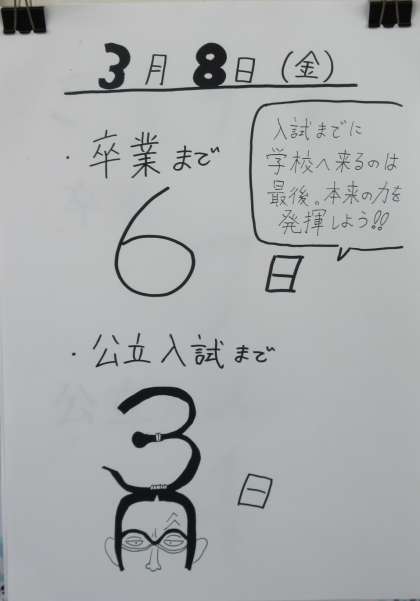 3月8日(金)
・卒業まで
6日
入試までに
学校へ来るのは
最後。本来の力を
発揮しよう!!
・公立入試まで
3日